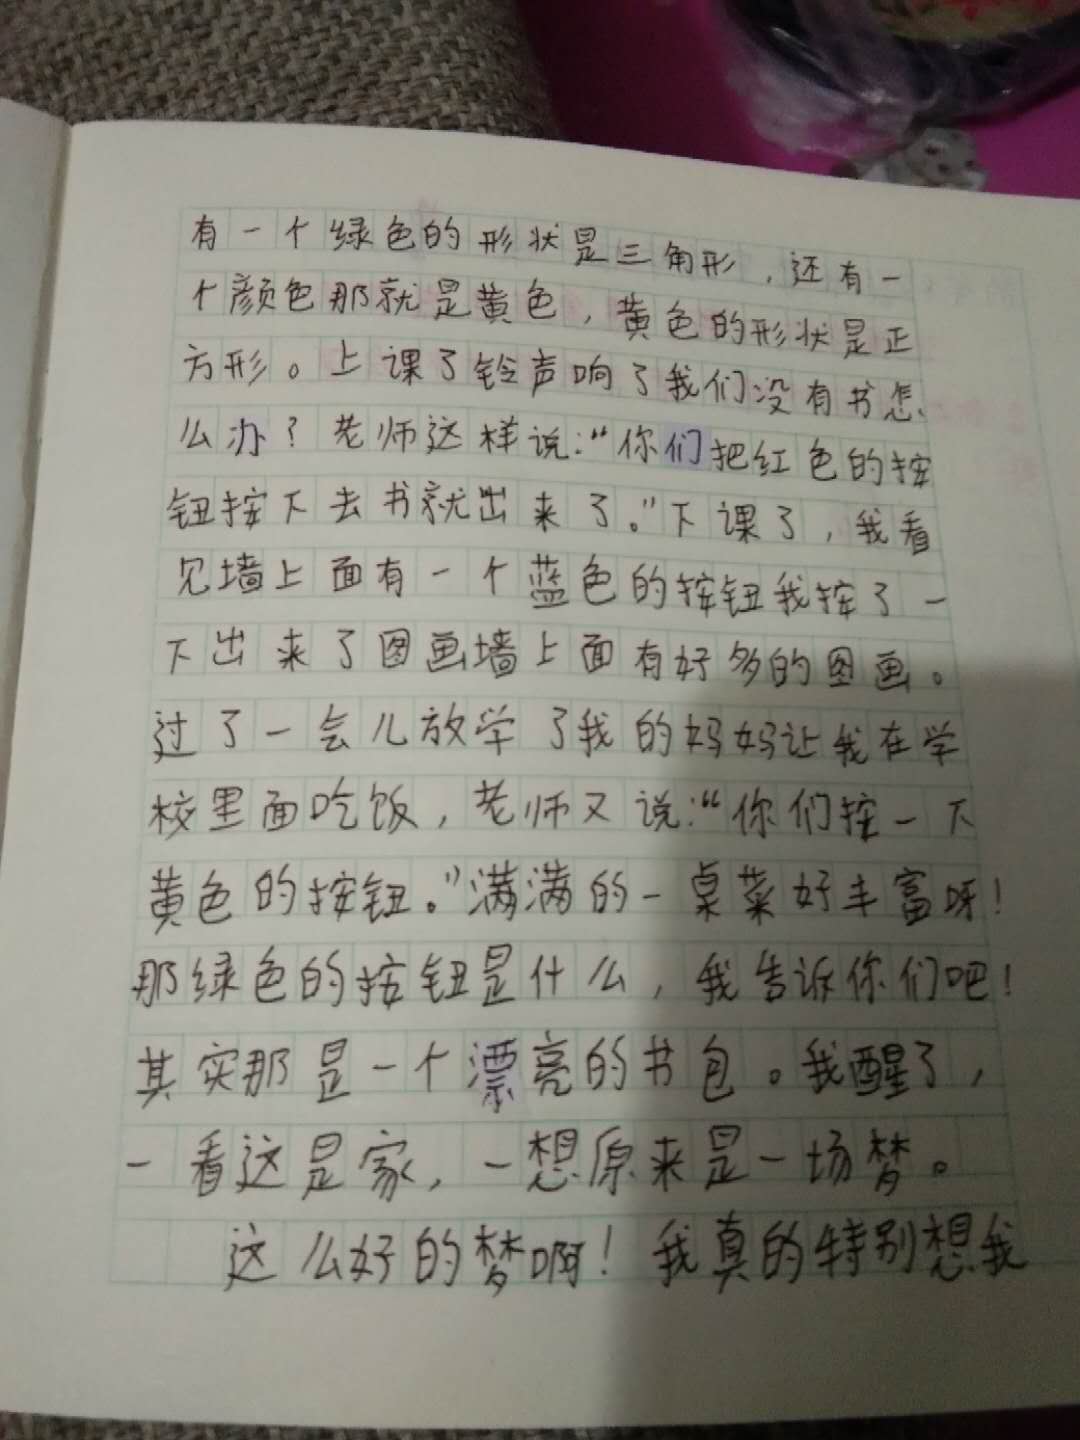 有一个绿色的形状是三角形，还有一
个颜色那就是黄色，黄色的形状是正
方形。上课了铃声响了我们没有书怎
么办？老师这样说：“你们把红色的按
钮按下去书就出来了。”下课了，我看
见墙上面有一个蓝色的按钮我按了一
下出来了图画墙上面有好多的图画。
过了一会儿放学了我的妈妈让我在学
校里面吃饭，老师又说：“你们按一下
黄色的按钮。”满满的一桌菜好丰富呀！
那绿色的按钮是什么，我告诉你们吧！
其实那是一个漂亮的书包。我醒了，
一看这是家，一想原来是一场梦。
这么好的梦啊！我真的特别想我